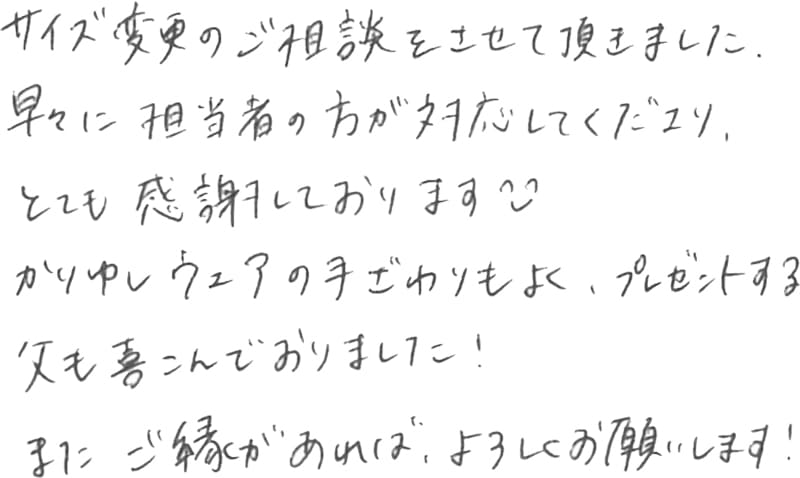 サイズ変更のご相談をさせて頂きました.
早々に担当者の方が対応してくださり、
とても感謝しております
かりゆしウェアの手ざわりもよく、プレゼントする
父も喜こんでおりました!
またご縁があれば、よろしくお願いします!